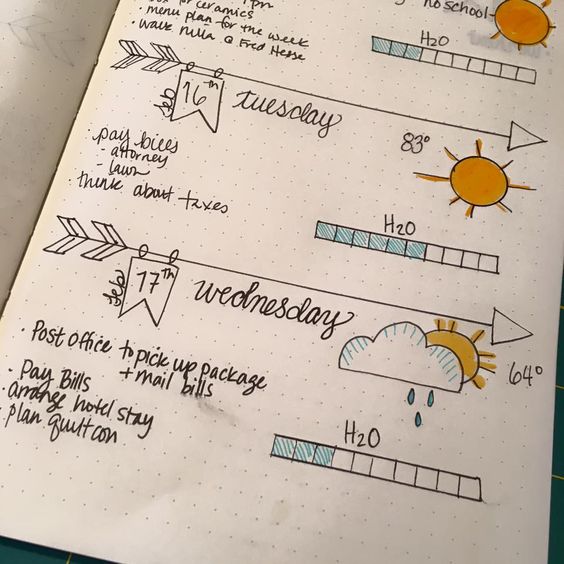 for ceramics
no school
· menu plan for the week
· wave @ Fred Hesse
H2O
Feb
16th
tuesday
83°
· pay bills
- attorney
- lawn
· think about taxes
H2O
Feb
17th
wednesday
64°
· Post Office to pick up package
+ mail bills
· Pay Bills
· arrange hotel stay
· plan quiltcon
H2O